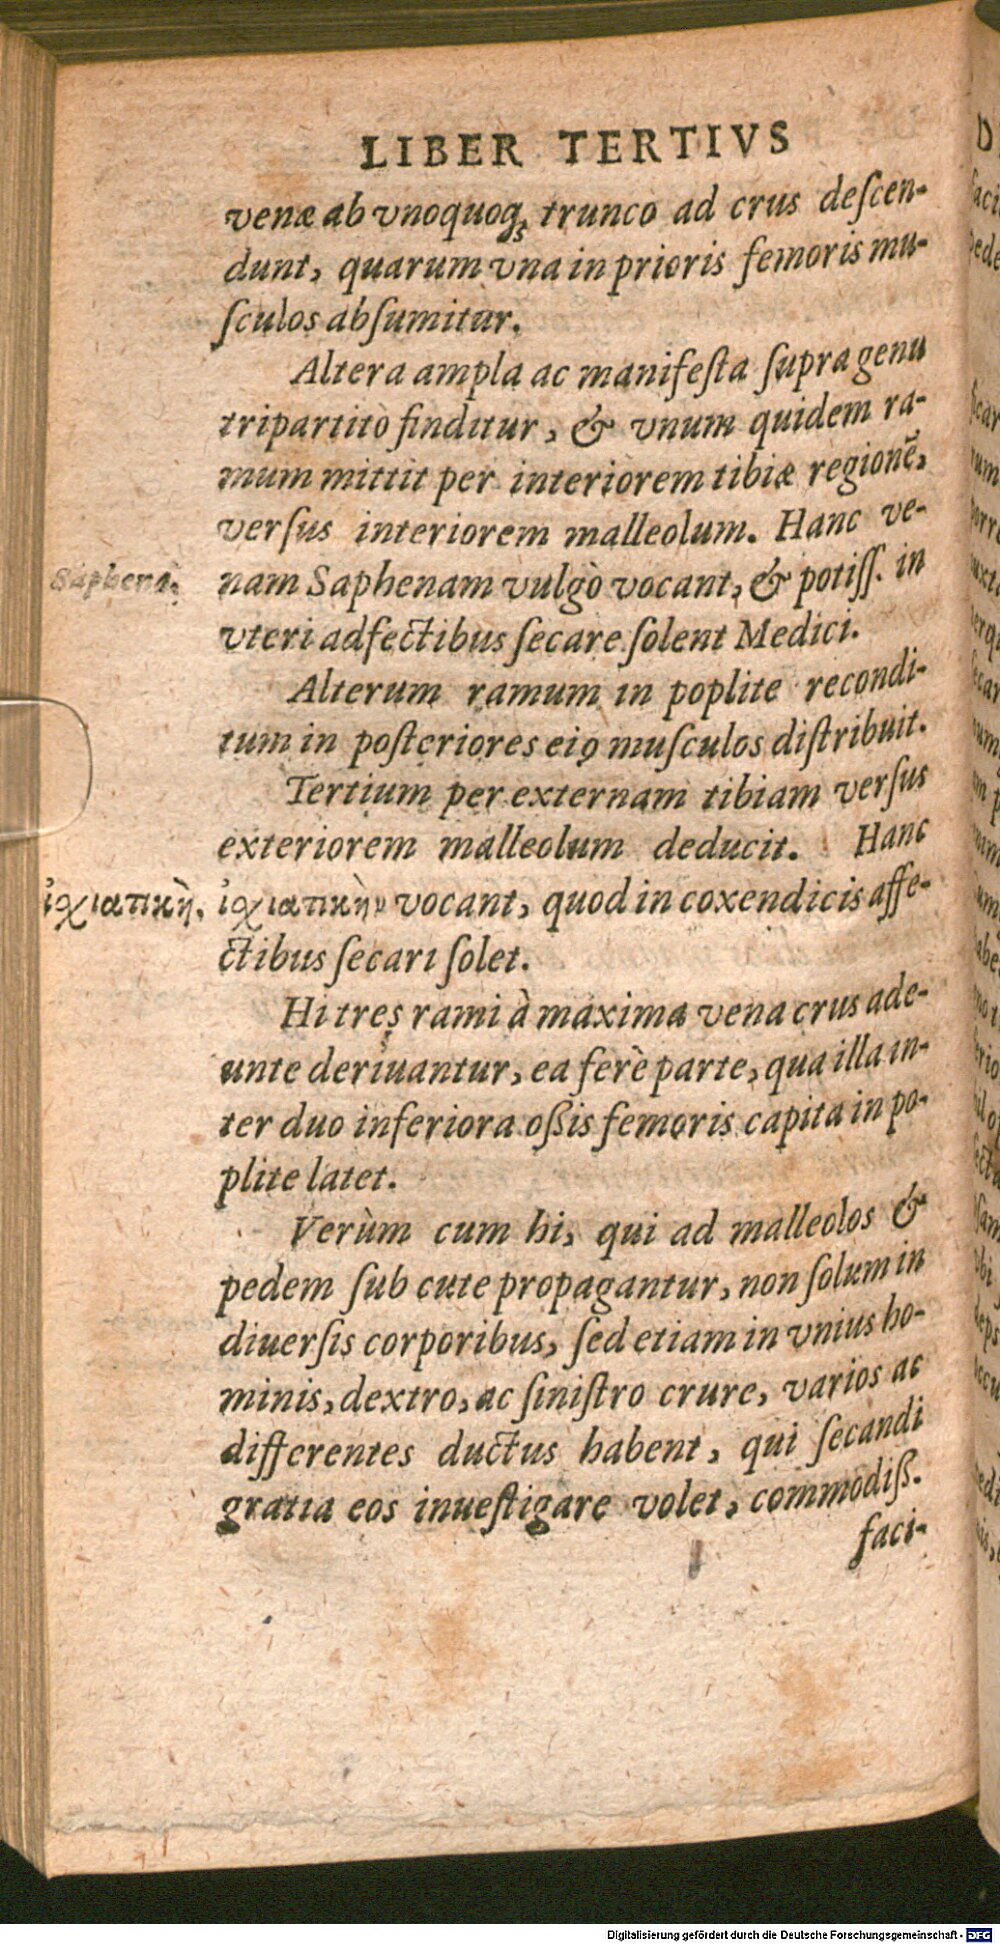 LIBER TERTIVS
venæ ab vnoquoq; trunco ad crus deſcen-
dunt, quarum vna in prioris femoris mu-
ſculos abſumitur.
Altera ampla ac manifeſta ſupra genu
tripartitò finditur, & vnum quidem ra-
mum mittit per interiorem tibiæ regionē,
verſus interiorem malleolum. Hanc ve-
Saphena.
nam Saphenam vulgò vocant, & potiſſ. in
vteri adfectibus ſecare ſolent Medici.
Alterum ramum in poplite recondi-
tum in poſteriores eiꝰ muſculos diſtribuit.
Tertium per externam tibiam verſus
exteriorem malleolum deducit. Hanc
ἰχιατικὴ.
ἰχιατικὴν vocant, quod in coxendicis affe-
ctibus ſecari ſolet.
Hi tres rami à maxima vena crus ade-
unte deriuantur, ea ferè parte, qua illa in-
ter duo inferiora oßis femoris capita in po-
plite latet.
Verùm cum hi, qui ad malleolos &
pedem ſub cute propagantur, non ſolum in
diuerſis corporibus, ſed etiam in vnius ho-
minis, dextro, ac ſiniſtro crure, varios ac
differentes ductus habent, qui ſecandi
gratia eos inueſtigare volet, commodiß.
faci-
Digitalisierung gefördert durch die Deutsche Forschungsgemeinschaft - DFG